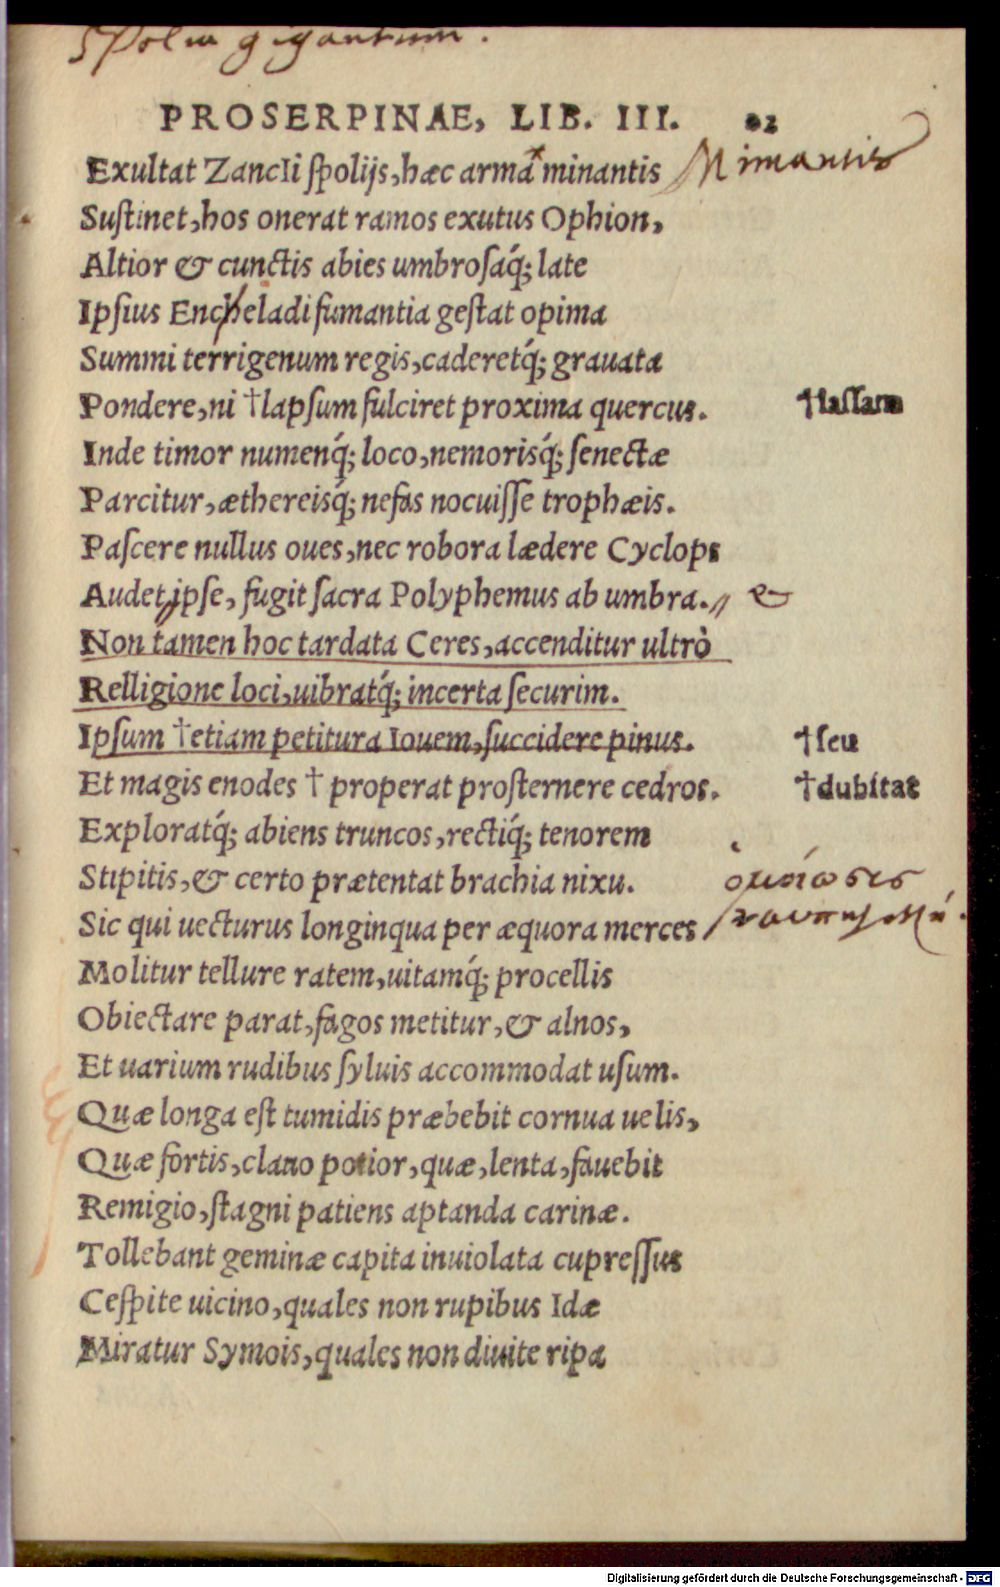 Spolia gigantum.
PROSERPINAE, LIB. III. 82
Exultat Zancli spolijs, hæc arma minantis Mimantis
Sustinet, hos onerat ramos exutus Ophion,
Altior & cunctis abies umbrosaq́; late
Ipsius Encheladi fumantia gestat opima
Summi terrigenum regis, caderetq́; grauata
Pondere, ni †lapsum fulciret proxima quercus. †lassam
Inde timor numenq́; loco, nemorisq́; senectæ
Parcitur, æthereisq́; nefas nocuisse trophæis.
Pascere nullus oues, nec robora lædere Cyclops
Audet, ipse, fugit sacra Polyphemus ab umbra. &
Non tamen hoc tardata Ceres, accenditur ultrò
Relligione loci, uibratq́; incerta securim.
Ipsum †etiam petitura Iouem, succidere pinus. †seu
Et magis enodes † properat prosternere cedros. †dubitat
Exploratq́; abiens truncos, rectiq́; tenorem
Stipitis, & certo prætentat brachia nixu. ὁμοίωσις
Sic qui uecturus longinqua per æquora merces
Molitur tellure ratem, uitamq́; procellis
Obiectare parat, fagos metitur, & alnos,
Et uarium rudibus syluis accommodat usum.
Quæ longa est tumidis præbebit cornua uelis,
Quæ fortis, clauo potior, quæ, lenta, fauebit
Remigio, stagni patiens aptanda carinæ.
Tollebant geminæ capita inuiolata cupressus
Cespite uicino, quales non rupibus Idæ
Miratur Symois, quales non diuite ripa
Digitalisierung gefördert durch die Deutsche Forschungsgemeinschaft - DFG